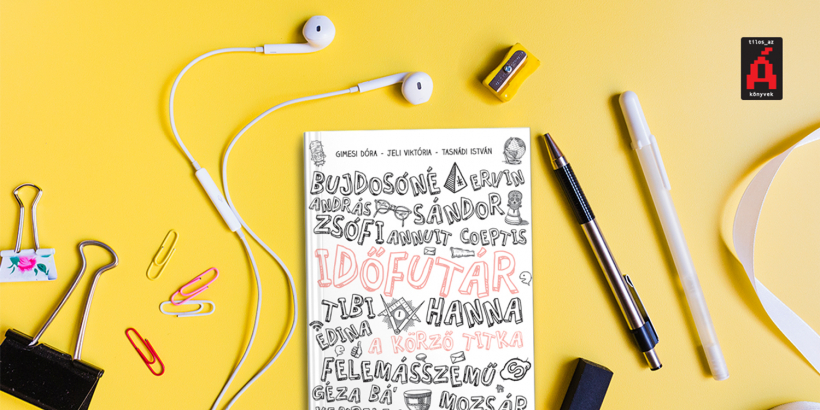 tilos_az
Á
könyvek
GIMESI DÓRA - JELI VIKTÓRIA - TASNÁDI ISTVÁN
BUJDOSÓNÉ ERVIN
ANDRÁS SÁNDOR
ZSÓFI ANNUIT COEPTIS
IDŐFUTÁR
TIBI HANNA
EDINA A KÖRZŐ TITKA
FELEMÁSSZEMŰ
GÉZA BÁ' MOZSÁR